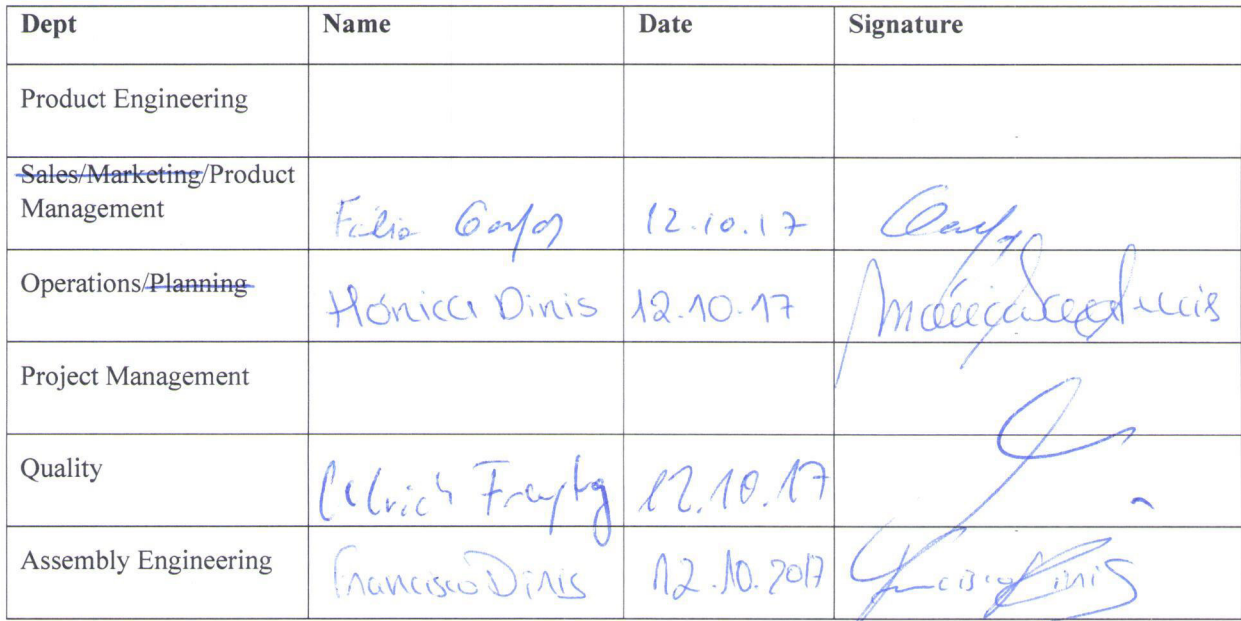 Dept Name Date Signature
Product Engineering
Sales/Marketing/Product
Management
12.10.17
Operations/Planning Mónica Dinis 12.10.17
Project Management
Quality Ulrich Freytag 12.10.17
Assembly Engineering Francisco Dinis 12.10.2017 Francisco Dinis